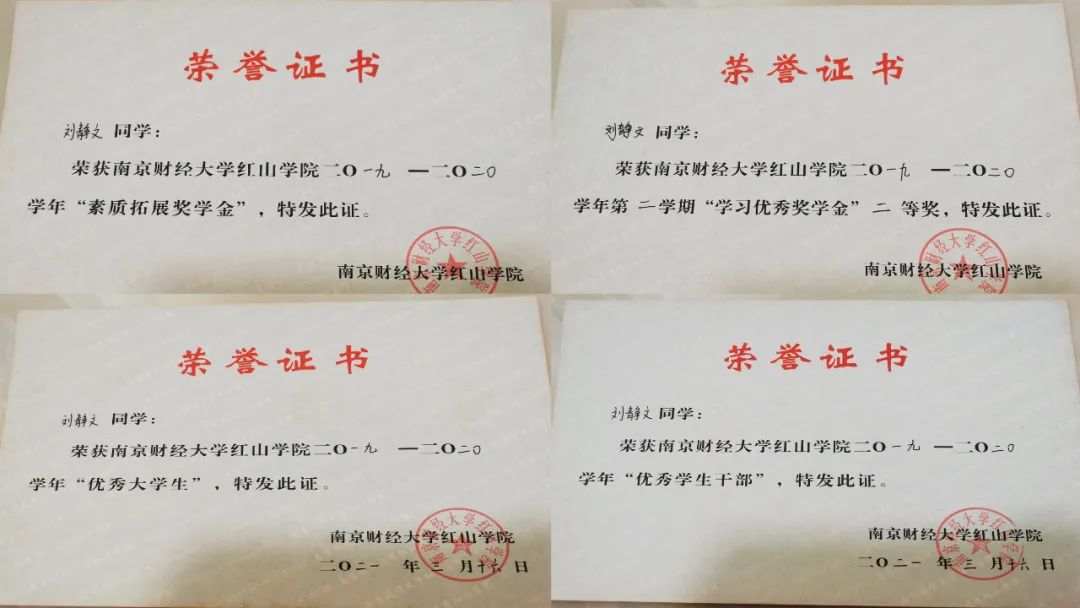 荣誉证书
刘静文 同学：
荣获南京财经大学红山学院二O一九 —二O二O
学年“素质拓展奖学金”，特发此证。
南京财经大学红山学院
荣誉证书
刘静文 同学：
荣获南京财经大学红山学院二O一九 —二O二O
学年第 二学期“学习优秀奖学金”二 等奖，特发此证。
南京财经大学红山学院
荣誉证书
刘静文 同学：
荣获南京财经大学红山学院二O一九 —二O二O
学年“优秀大学生”，特发此证。
南京财经大学红山学院
二O二一 年 三 月十六 日
荣誉证书
刘静文 同学：
荣获南京财经大学红山学院二O一九 —二O二O
学年“优秀学生干部”，特发此证。
南京财经大学红山学院
二O二一 年 三 月十六 日